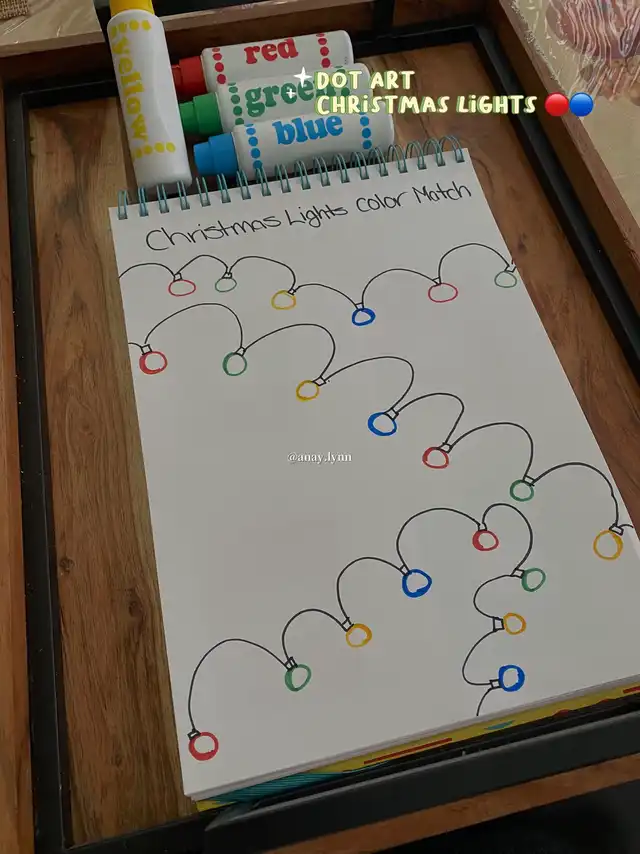 yellow
red
green
blue
DOT ART
CHRISTMAS LIGHTS
Christmas Lights Color Match
@anay.lynn